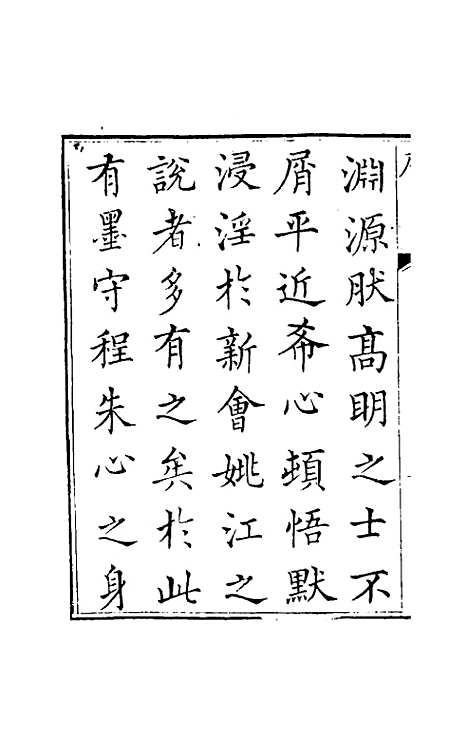 淵源肰高明之士不
屑平近希心頓悟默
浸淫於新會姚江之
說者多有之矣於此
有墨守程朱心之身